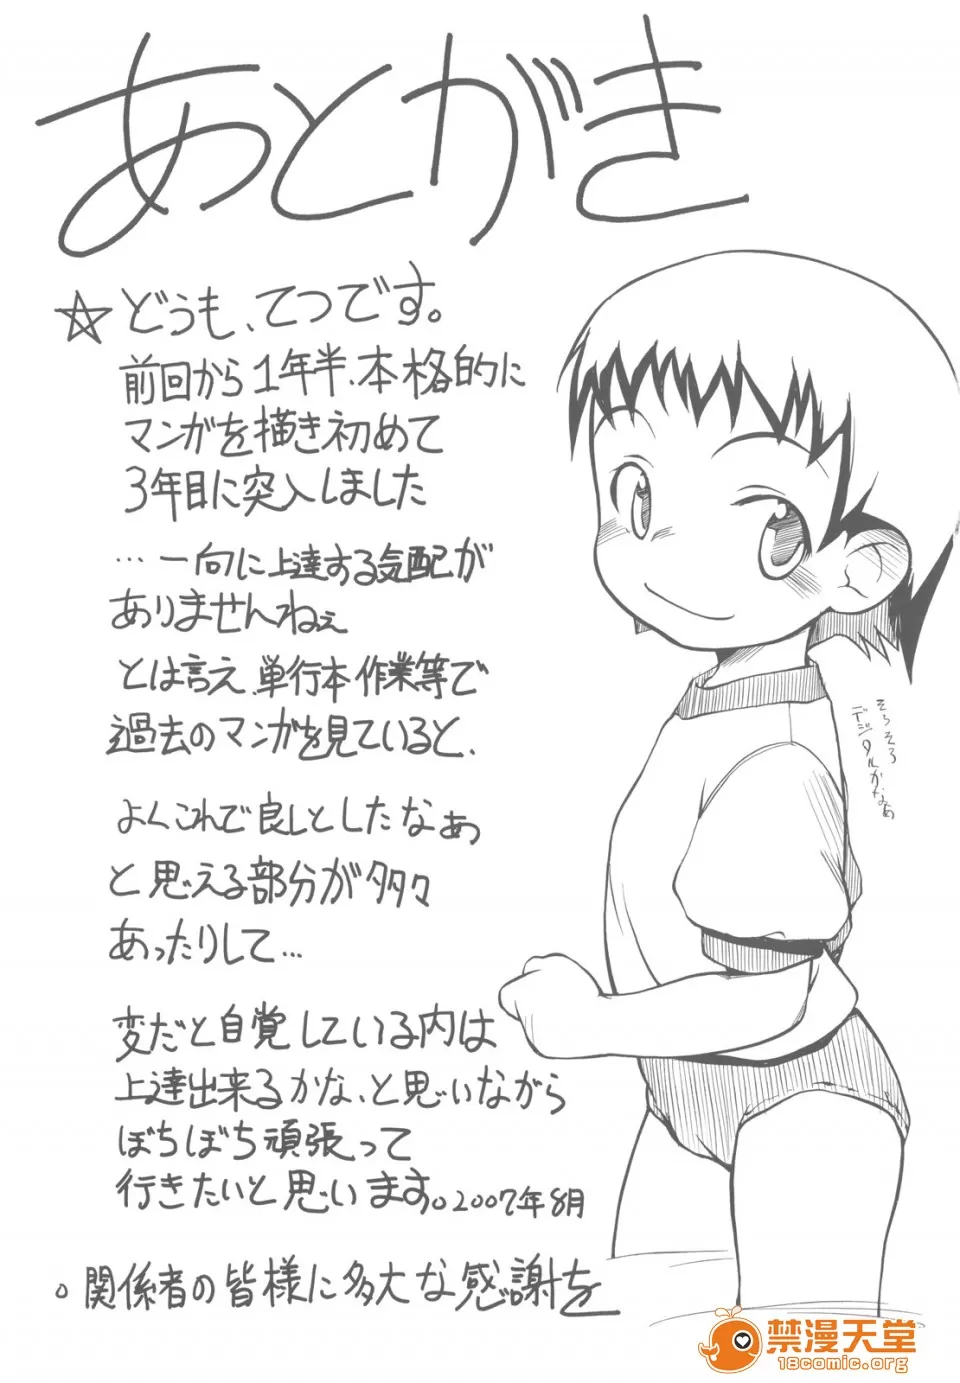 あとがき
☆どうも、てつです。
前回から1年半、本格的に
マンガを描き初めて
3年目に突入しました
…一向に上達する気配が
ありませんねぇ
とは言え、単行本作業等で
過去のマンガを見ていると、
よくこれで良しとしたなぁ
と思える部分が多々
あったりして…
変だと自覚している内は
上達出来るかな、と思いながら
ぼちぼち頑張って
行きたいと思います。2007年8月
。関係者の皆様に多大な感謝を
そろそろ
デジタルかなぁ
禁漫天堂
18comic.org